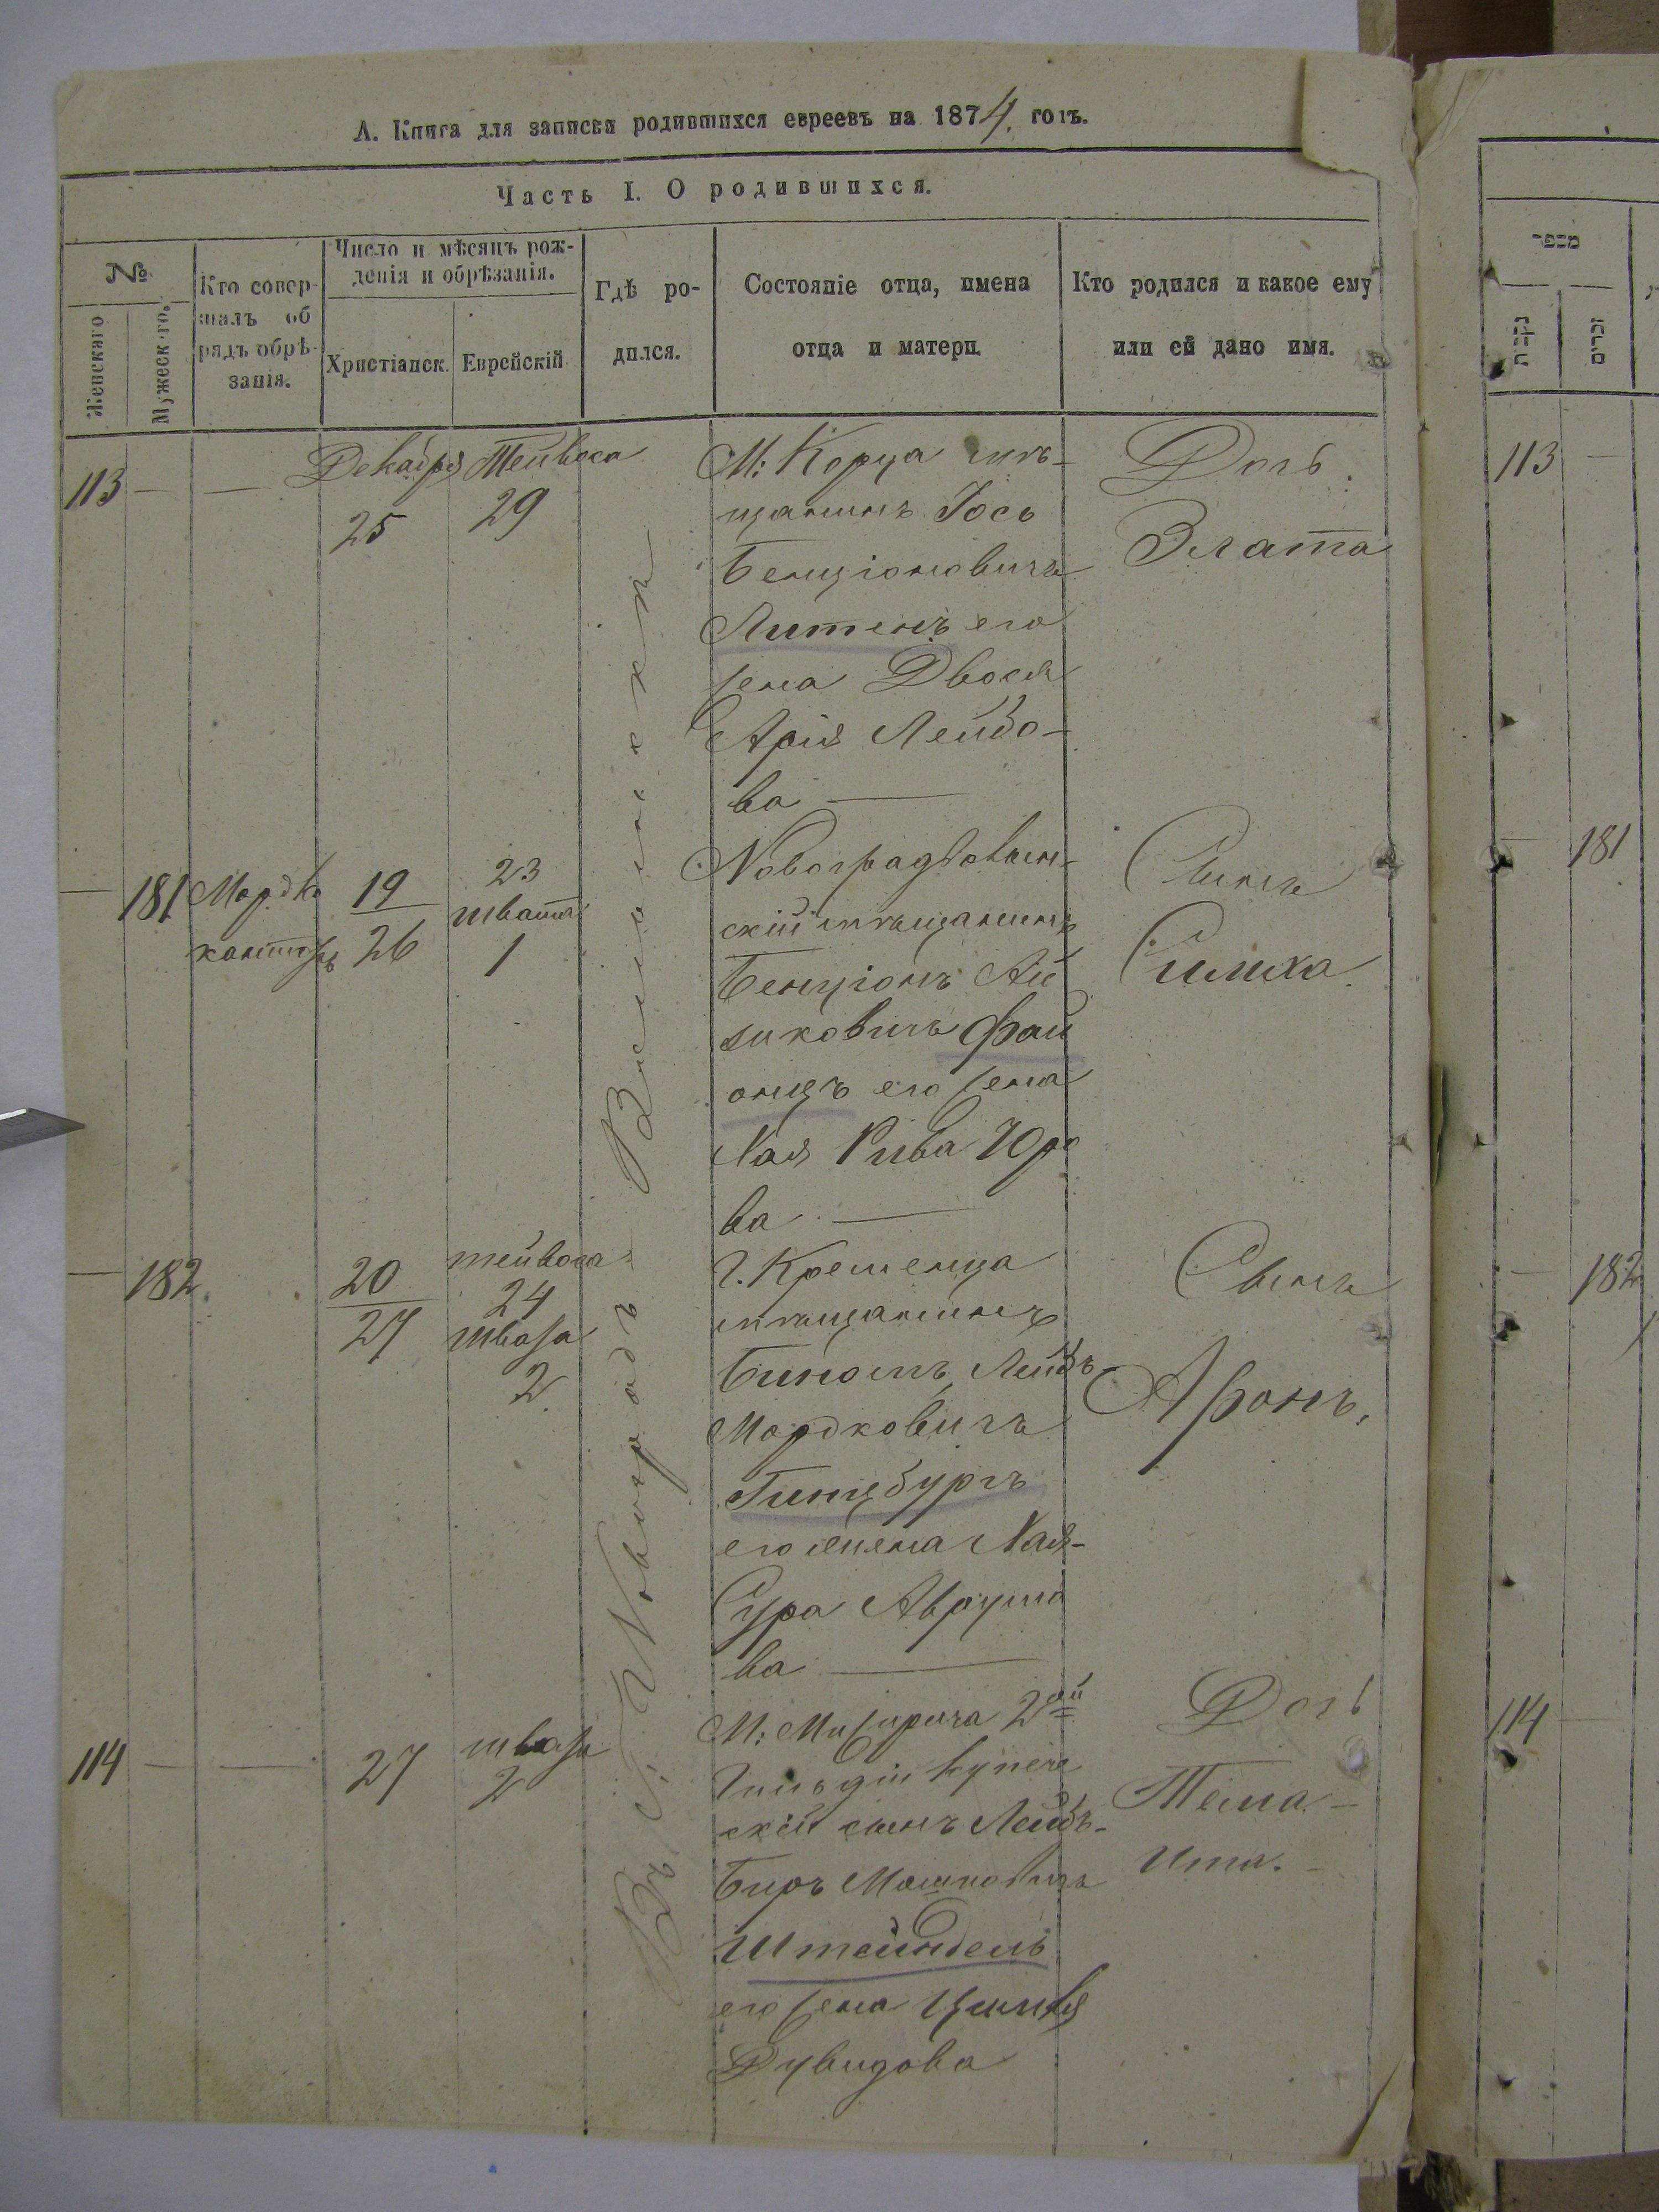 А. Книга для записки родившихся евреевъ на 1874 годъ.
Часть I. О родившихся.
№
Женскаго
Мужеск-го.
Кто совер-
шалъ об
рядъ обрѣ-
занія.
Число и мѣсяцъ рож-
денія и обрѣзанія.
Христіанск.
Еврейскій
Гдѣ ро-
дился.
Состояніе отца, имена
отца и матери.
Кто родился и какое ему
или ей дано имя.
Въ г. Новоградъ Волынскѣ
113 — — Декабря Тейвеса
25 29
М: Корца мѣ-
щанинъ Іось
Бенціоновичъ
Литенъ его
жена Двося
Арія Лейбо-
ва —
Дочь
Злата
— 181 Мордко
контръ
19
26
23
швата
1
Новоградволын-
скій мѣщанинъ
Бенціонъ Ай
зиковичъ Фай
онцъ его жена
Хая Рива Юро
ва —
Сынъ
Симха.
— 182.
20
27
тейвеса
24
шваѣа
2
Г. Кременца
мѣщанинъ
Биномъ Лейбъ-
Мордковичъ
Гинцбургъ
его жена Хая-
Сура Аврумо
ва —
Сынъ
Аронъ.
114 — — 27
2
М: Межирича 2ой
Гильдіи купече
скій сынъ Лейбъ-
Беръ Мошковичъ
Штейндель
его жена Цивья
Дувидова
Дочь
Тема —
Ита. —
מספר
נקבות
זכרים
113 —
— 181
— 182
114 —